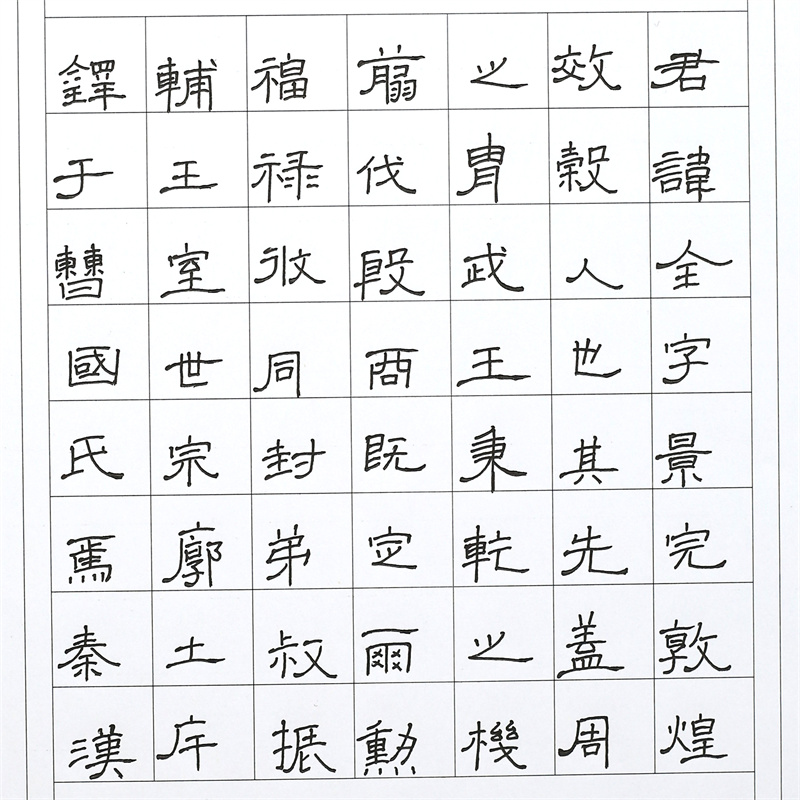 君諱全字景完敦煌
效穀人也其先蓋周
之胄武王秉乾之機
翦伐殷商既定爾勳
福祿攸同封弟叔振
輔王室世宗廓土斥
鐸于曹國氏焉秦漢